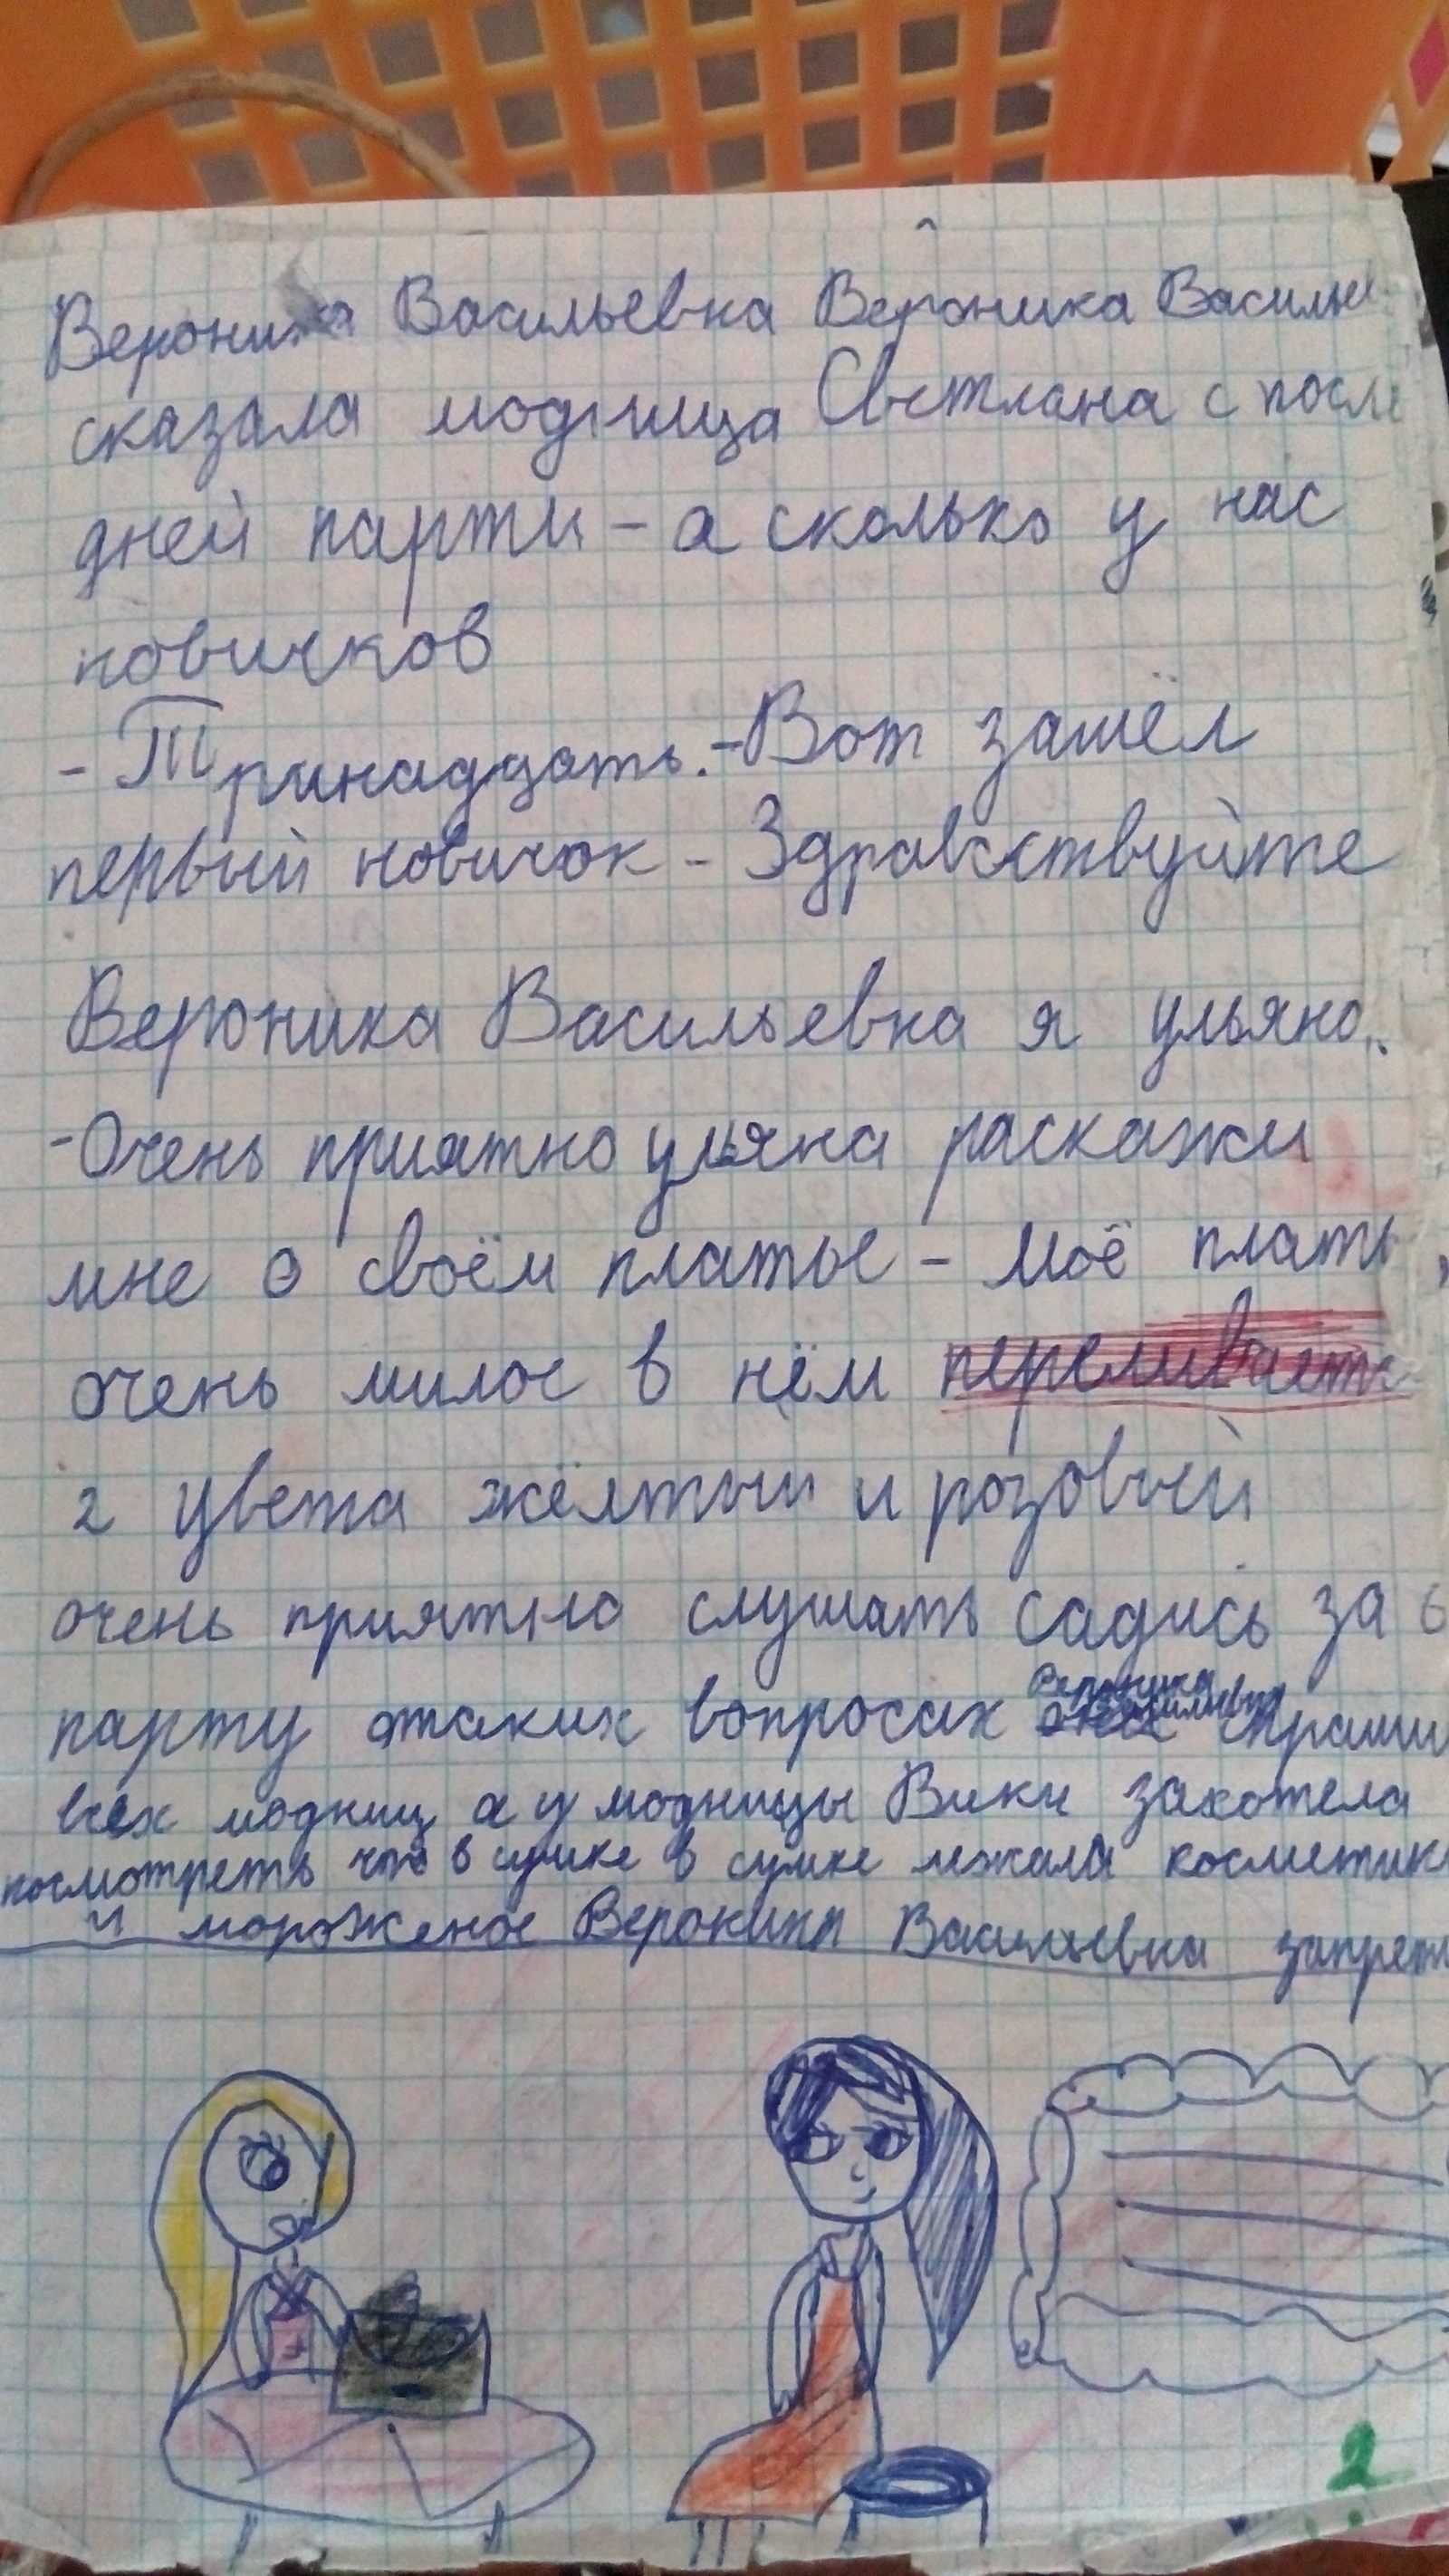 Вероника Васильевна Вероника Василье
сказала модница Светлана с после
дней парти - а сколько у нас
новичков
- Тринадцать. - Вот зашёл
первый новичок - Здравсствуйте
Вероника Васильевна я ульяна.
- Очень приятно ульяна раскажи
мне о своём платье - Моё плать
очень милое в нём переливаетс
2 цвета жёлтый и розовый
очень приятно слушать садись за
парту отаких вопросах Вероника Васильевна спраши
всех модниц а у модницы Вики захотела
посмотреть что в сумке в сумке лежала косметик
и мороженое Вероника Васильевна запрет
2